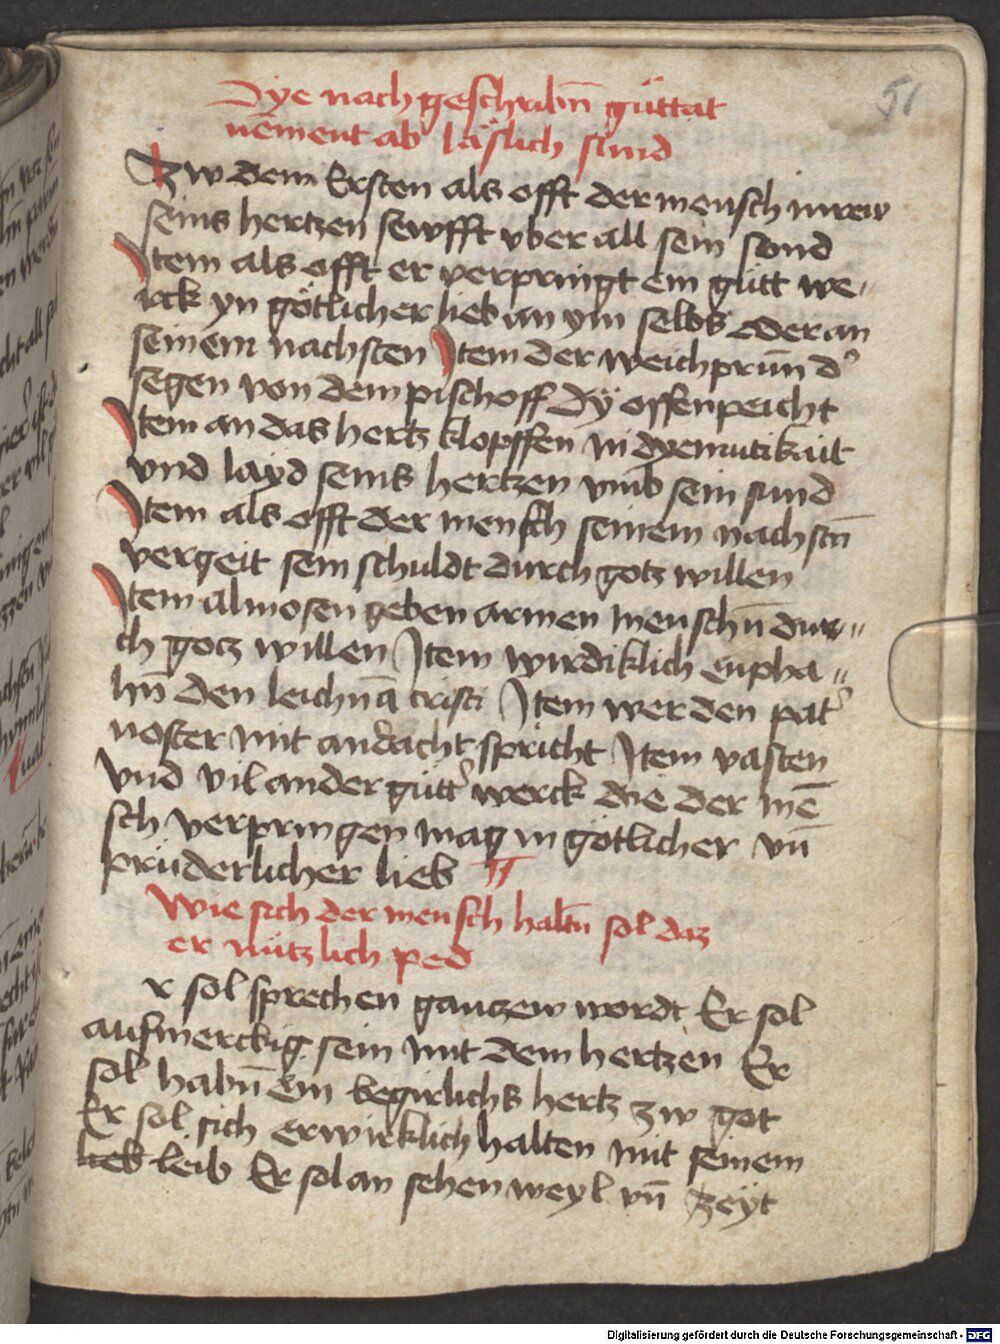 51
Dye nach geschribn̄ güttat
nēment ab läslich sund
Zw dem Ersten als offt der mensch in rew
seins hertzen sewfft vber all sein sond
Item als offt er verpringt ein gütt we„
rck yn götlicher lieb an ym selbs oder an
seinem nachsten Item der weichprūn d'
segen von dem pischoff Dÿ offenpeicht
Item an das hertz klopffen in dyemutikait
vnd layd seins hertzen vmb sein sund
Item als offt der mensch seinem nachstn̄
vergeit sein schuldt durch gotz willen
Item almosen geben armen menschn̄ dur„
ch gotz willen Item wirdiklich enpha„
hn̄ den leichnā cristi Item wer den pat'
noster mit andacht spricht Item vasten
vnd vil ander gütt' werck die der mē
sch verpringen mag in götlicher vn̄
prüderlicher lieb
Wie sich der mensch haltn̄ sol daz
er nützlich ped
r sol sprechen ganczew wordt Er sol
aufmerckig sein mit dem hertzen Er
sol habn̄ ein begirlichs hertz zw got
Er sol sich erwirklich halten mit seinem
lieb leib Er sol an sehen weyl vn̄ zeÿt
Digitalisierung gefördert durch die Deutsche Forschungsgemeinschaft - DFG